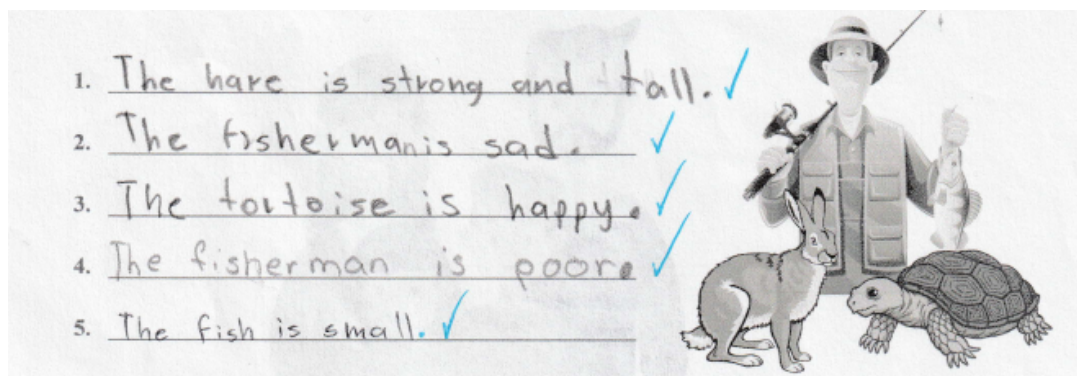 1. The hare is strong and tall.
2. The fisherman is sad.
3. The tortoise is happy.
4. The fisherman is poor.
5. The fish is small.